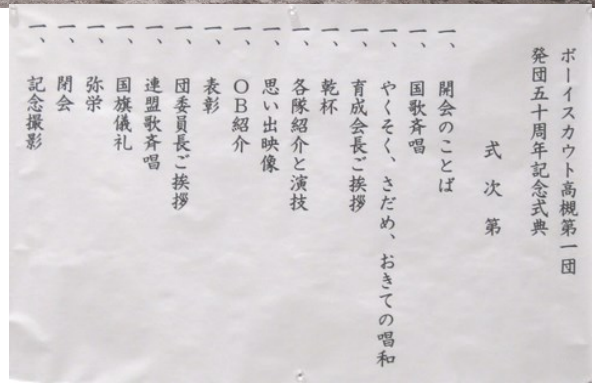 ボーイスカウト高槻第一団
発団五十周年記念式典
式次第
一、開会のことば
一、国歌斉唱
一、やくそく、さだめ、おきての唱和
一、育成会長ご挨拶
一、乾杯
一、各隊紹介と演技
一、思い出映像
一、OB紹介
一、表彰
一、団委員長ご挨拶
一、連盟歌斉唱
一、国旗儀礼
一、弥栄
一、閉会
一、記念撮影